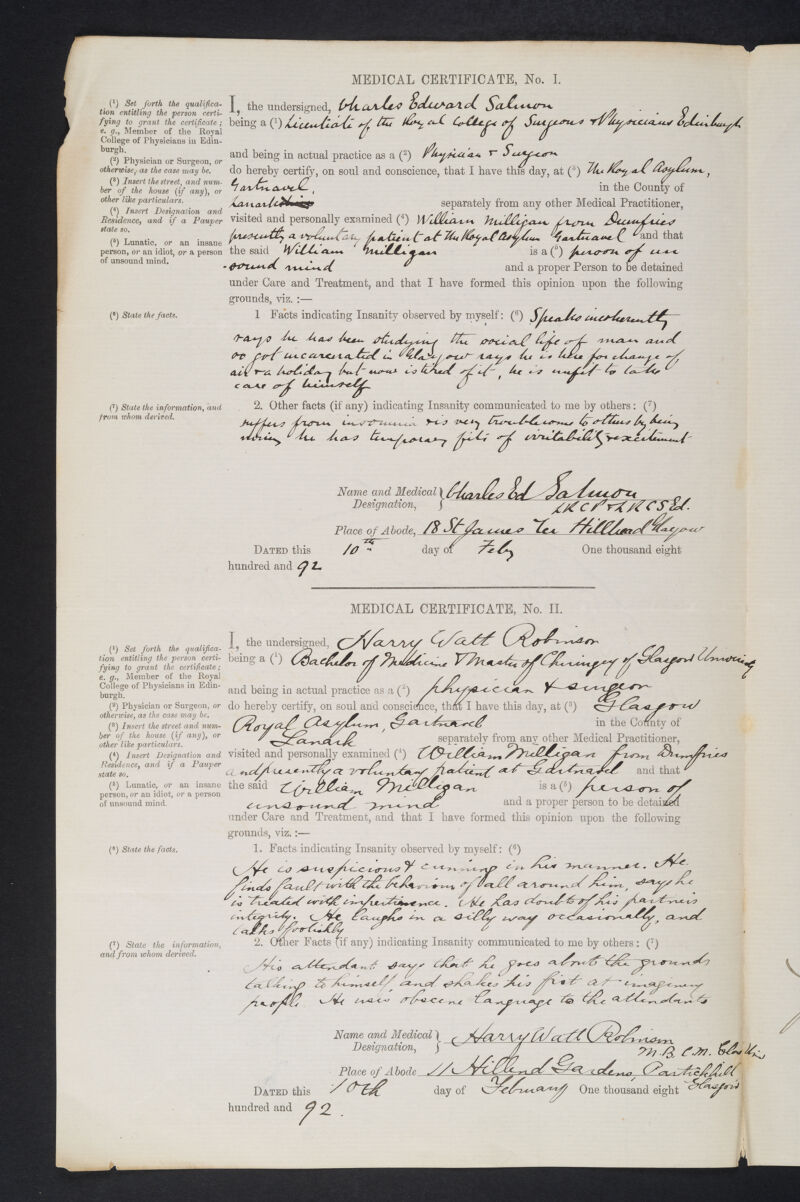 MEDICAL CERTIFICATE, No. I.
(¹) Set forth the qualifica-
tion entitling the person certi-
fying to grant the certificate;
e. g., Member of the Royal
College of Physicians in Edin-
burgh.
(²) Physician or Surgeon, or
otherwise, as the case may be.
(³) Insert the street, and num-
ber of the house (if any), or
other like particulars.
(⁴) Insert Designation and
Residence, and if a Pauper
state so.
(⁵) Lunatic, or an insane
person, or an idiot, or a person
of unsound mind.
I, the undersigned, Charles Edward Salmon
being a (¹) Licentiate of the Royal College of Surgeons & Physicians Edinburgh
and being in actual practice as a (²) Physician & Surgeon
do hereby certify, on soul and conscience, that I have this day, at (³) The Royal Asylum,
Gartnavel, in the County of
Lanark separately from any other Medical Practitioner,
visited and personally examined (⁴) William Milligan from Dumfries
presently a voluntary patient at the Royal Asylum Gartnavel and that
the said William Milligan is a (⁵) person of un
-sound mind and a proper Person to be detained
under Care and Treatment, and that I have formed this opinion upon the following
grounds, viz. :—
(⁶) State the facts.
1 Facts indicating Insanity observed by myself: (⁶) Speaks incoherently
says he has been studying the social life of man and
so got incarcerated in Glasgow says he is here for change of
air & a holiday but now is tired of it, he is unfit to take
care of himself
(⁷) State the information, and
from whom derived.
2. Other facts (if any) indicating Insanity communicated to me by others: (⁷)
suffers from insomnia & is very troublesome to others by being
noisy he has temporary fits of irritability & excitement
Name and Medical Designation, Charles Ed Salmon
LRCP & LRCSEd.
Place of Abode, 18 St James Ter Hillhead Glasgow
DATED this 10th day of Feby One thousand eight
hundred and 92
MEDICAL CERTIFICATE, No. II.
(¹) Set forth the qualifica-
tion entitling the person certi-
fying to grant the certificate;
e. g., Member of the Royal
College of Physicians in Edin-
burgh.
(²) Physician or Surgeon, or
otherwise, as the case may be.
(³) Insert the street and num-
ber of the house (if any), or
other like particulars.
(⁴) Insert Designation and
Residence, and if a Pauper
state so.
(⁵) Lunatic, or an insane
person, or an idiot, or a person
of unsound mind.
I, the undersigned, Harry Watt Robinson
being a (¹) Bachelor of Medicine & Master of Chirurgery of Glasgow University
and being in actual practice as a (²) physician & surgeon
do hereby certify, on soul and conscience, that I have this day, at (³) Glasgow
Royal Asylum, Gartnavel in the County of
Lanark separately from any other Medical Practitioner,
visited and personally examined (⁴) William Milligan from Dumfries
and presently a voluntary patient at Gartnavel and that
the said William Milligan is a (⁵) person of
unsound mind and a proper person to be detained
under Care and Treatment, and that I have formed this opinion upon the following
grounds, viz. :—
(⁶) State the facts.
1. Facts indicating Insanity observed by myself: (⁶)
He is suspicious & cunning in his manner. He
finds fault with the behaviour of all around him, says he
is treated with impertinence. He has doubts of his partner's
integrity. He laughs in a silly way occasionally, and
talks foolishly
(⁷) State the information,
and from whom derived.
2. Other Facts (if any) indicating Insanity communicated to me by others: (⁷)
His attendant says that he goes about the grounds
talking to himself, and shakes his fist at imaginary
people. He uses obscene language to the attendants
Name and Medical Designation, Harry Watt Robinson
M.B. C.M. Glas Univ
Place of Abode 11 Hillend Gardens, Partickhill
Glasgow
DATED this 10th day of February One thousand eight
hundred and 92.